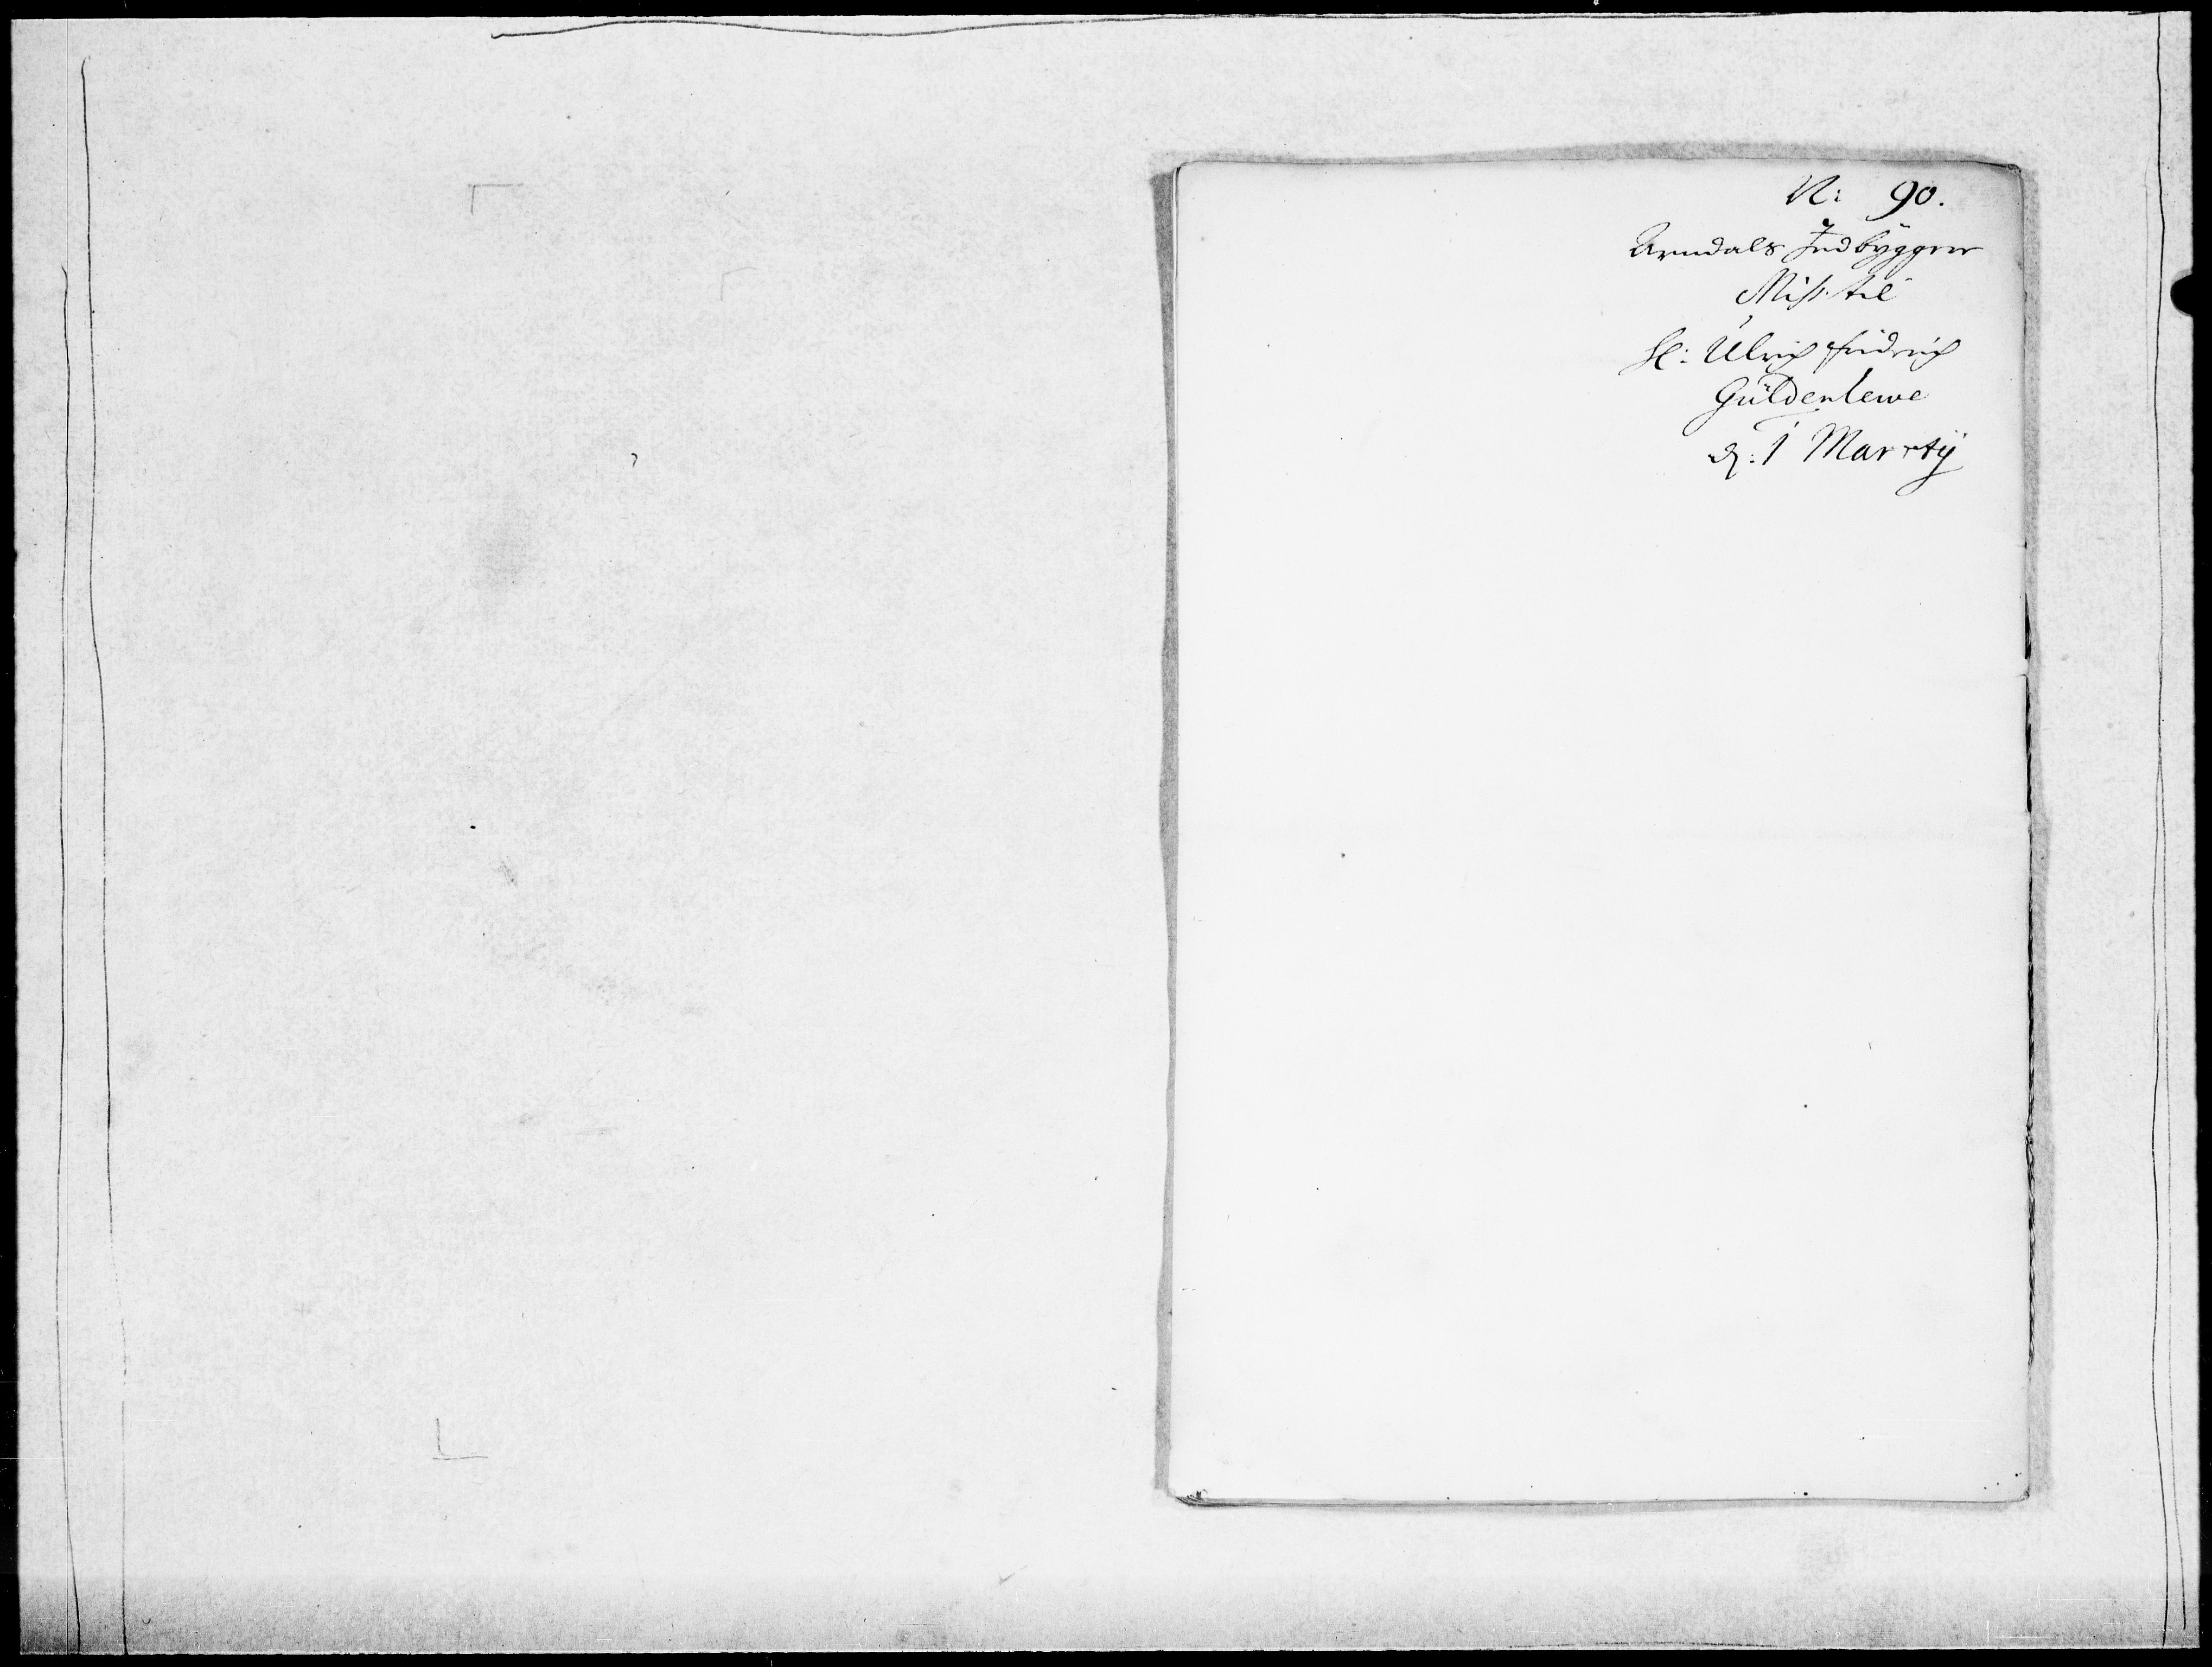 N: 90.
Arndals Indbyggere
Miss. til
H: Ulrich Fridrich
Güldenlewe
d: 1 Martij